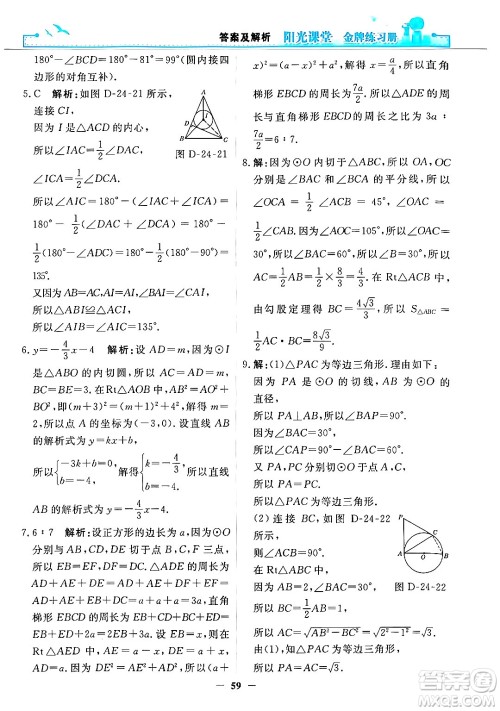 答案及解析 阳光课堂 金牌练习册
180°－∠BCD＝∠DCE(圆内接四
边形的对角互补).
5.C 解析：如图 D-24-21
连接 CI，
因为 I 为△ACD 的内心，
所以∠IAC＝1/2∠DAC，
图 D-24-21
∠ICA＝1/2∠DCA.
所以∠AIC＝180°－∠IAC－∠ICA＝
180°－1/2(∠DAC＋∠DCA)＝180°－
1/2(180°－∠ADC)＝180°－1/2(180°－90°)＝
135°.
又因为 AI＝AI，∠DAI＝∠BAI，AB＝AC，
所以△ABI≌△ACI，
所以∠AIB＝∠AIC＝135°.
6.y＝－4/3x－4 解析：设 AD＝m，因为⊙I
是△ABO 的内切圆，所以 AF＝AD＝m，
BC＝BE＝3. 在 Rt△ABO 中，AB²＝AO²＋
BO²，即(m＋3)²＝(m＋1)²＋4²，解得 m＝
2，所以点 A 的坐标为(－3,0). 设直线
AB 的解析式为 y＝kx＋b，
所以{－3k＋b＝0, b＝－4, 解得{k＝－4/3, b＝－4, 所以直线
AB 的解析式为 y＝－4/3x－4.
7.6∶7 解析：设正方形的边长为 a，因为⊙O
分别与边 AB，CD，DA 和 DE 相切，
所以 EB＝EF，AD＝DF，△ADE 的周长为
AD＋AE＋DE＝AD＋AE＋DF＋EF＝
AD＋AE＋AD＋EB＝AD＋AD＋AB＝3a，
直角梯形 EBCD 的周长为
EB＋CD＋BC＋DE＝
EB＋CD＋BC＋EF＋DF＝2EB＋3a，在
Rt△AED 中，AD²＋AE²＝DE².
设 BE 长为 x，则 a²＋(a－x)²＝(a＋
x)²＝，解得 x＝a/4，所以直角
梯形 EBCD 的周长为 7a/2，所以△ADE 的周
长与直角梯形 EBCD 的周长比为 3a∶
7a/2＝6∶7.
8.解：因为⊙O 内切于△ABC，所以 OA，OC
分别是∠CAB 和∠BCA 的平分线，所以
∠OCA＝1/2∠ACB＝45°，∠OAC＝
1/2∠CAB. 因为∠AOC＝105°，所以∠OAC＝
30°，所以∠BAC＝60°，所以∠B＝30°. 所以
BC＝1/2AB＝1/2×8/3＝4/3. 在 Rt△ABC 中，
由勾股定理得 BC＝4√3/3，所以 S△ABC＝
1/2AC·BC＝8√3/9.
9.解：(1)△PAC 为等边三角形. 理由如下：
因为 PA 是⊙O 的切线，AB 是⊙O 的
直径，
所以 PA⊥AB，所以∠BAP＝90°.
因为∠BAC＝30°，
所以∠PAC＝60°.
又因为 PA＝PC，
所以△PAC 是等边三角形.
(2)连接 BC，如图 D-24-22
因为 AB 是⊙O 的直径，
所以∠ACB＝90°.
因为∠BAC＝30°，
图 D-24-22
所以 BC＝1/2AB＝1/2×2＝1.
所以 AC＝√(AB²－BC²)＝√(2²－1²)＝√3.
因为△PAC 为等边三角形，
所以 PA＝AC＝√3.
59